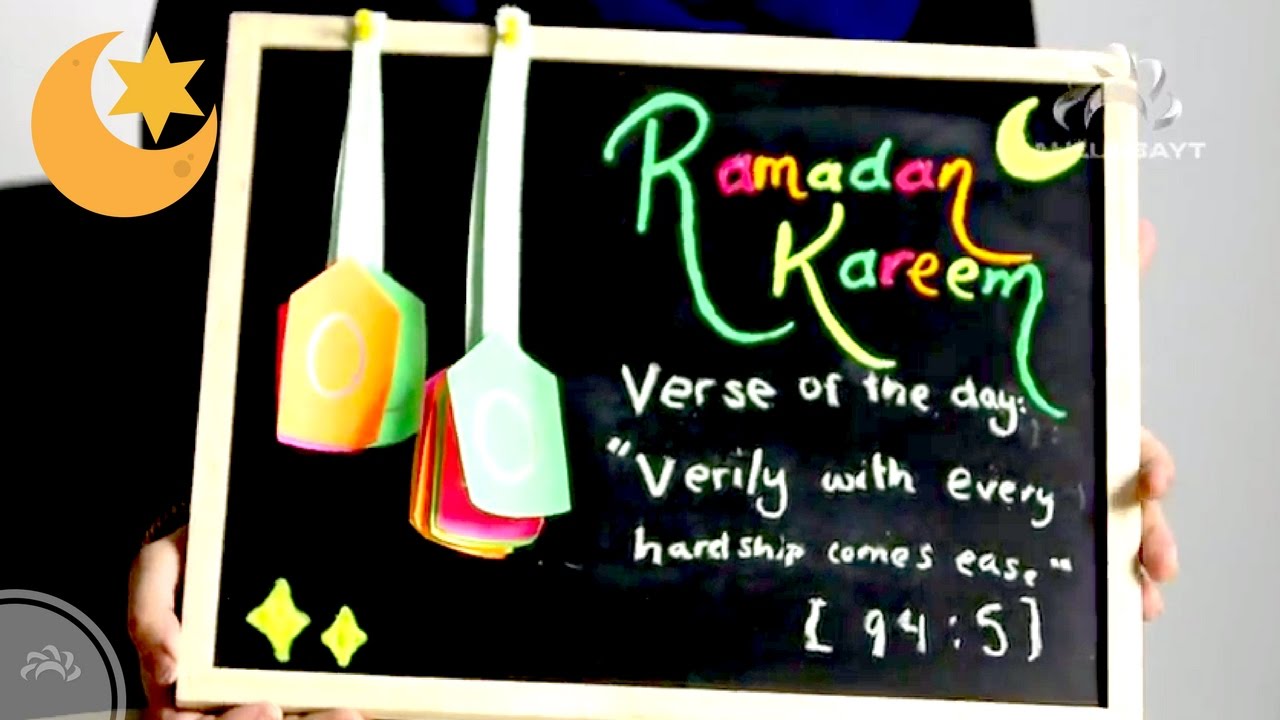 Ramadan
Kareem
Verse of the day:
"Verily with every
hardship comes ease"
[94:5]
0
0